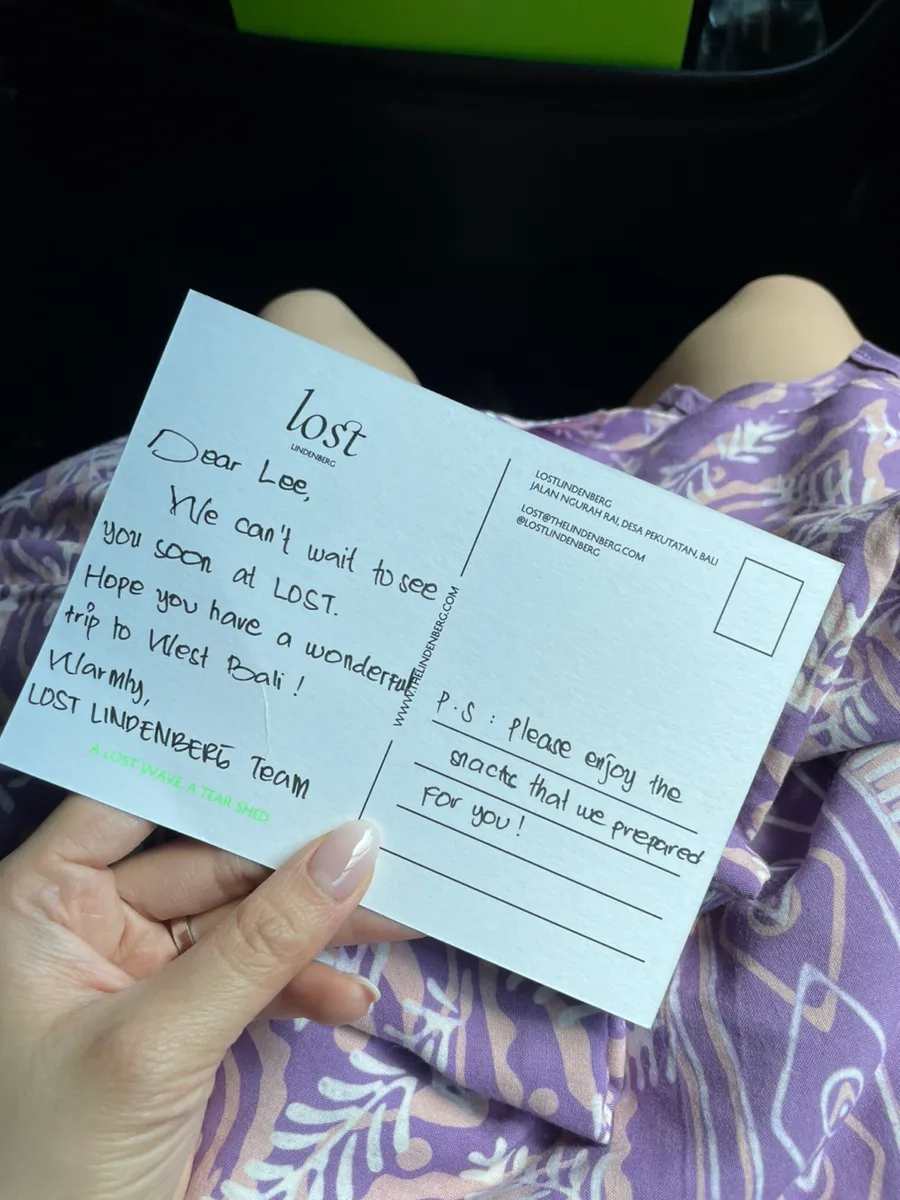 lost
LINDENBERG
Dear Lee,
We can't wait to see
you soon at LOST.
Hope you have a wonderful
trip to West Bali !
Warmly,
LOST LINDENBERG Team
A LOST WAKE A TEAR SHED
WWW.THELINDENBERG.COM
LOSTLINDENBERG
JALAN NGURAH RAI, DESA PEKUTATAN, BALI
LOST@THELINDENBERG.COM
@LOSTLINDENBERG
P.S : Please enjoy the
snacks that we prepared
for you !